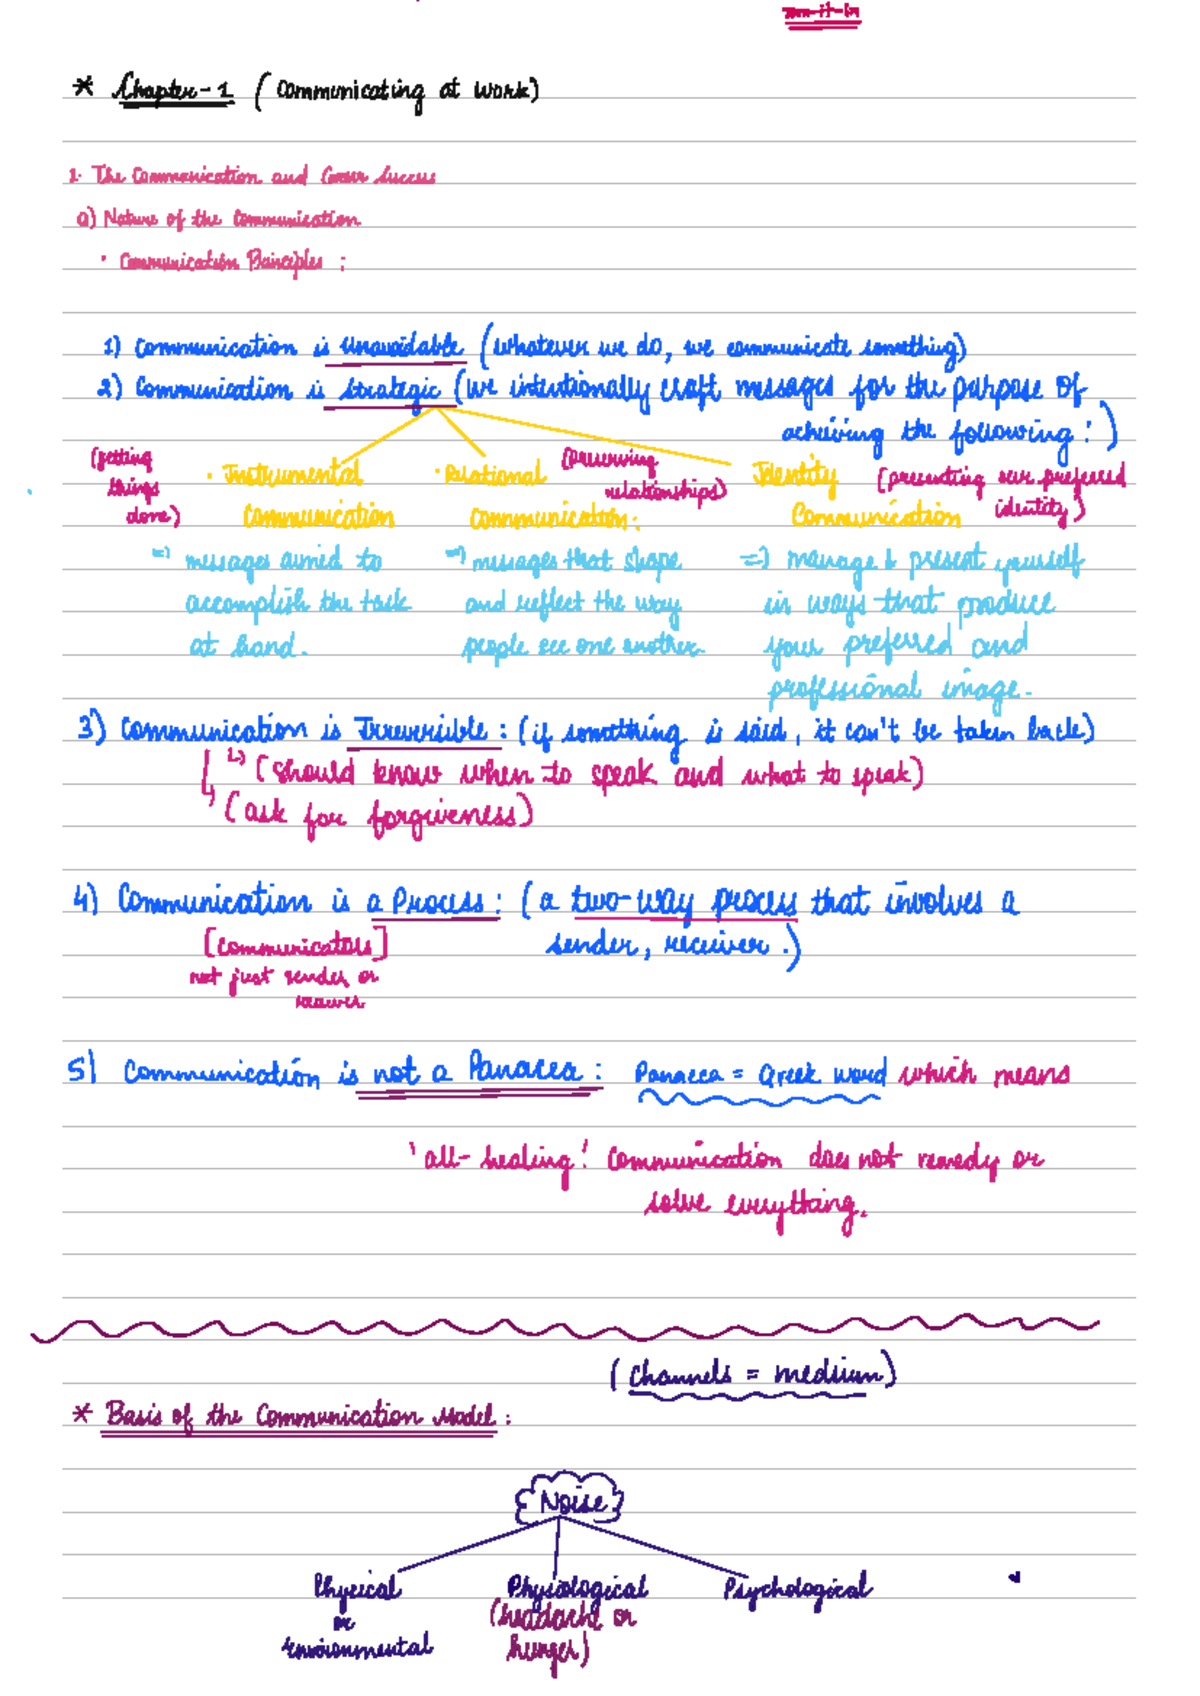 * Chapter-1 (Communicating at work)
1. The Communication and Career Success
a) Nature of the Communication
• Communication Principles :
1) Communication is Unavoidable (whatever we do, we communicate something)
2) Communication is Strategic (we intentionally craft messages for the purpose of
acheiving the following : )
(getting things done)
• Instrumental Communication
• Relational Communication :
(preserving relationships)
Identity Communication
(presenting our preferred identity)
=> messages aimed to accomplish the task at hand.
=> messages that shape and reflect the way people see one another.
=> manage & present yourself in ways that produce your preferred and professional image.
3) Communication is Irreversible : (if something is said, it can't be taken back)
(should know when to speak and what to speak)
(ask for forgiveness)
4) Communication is a Process : (a two-way process that involves a
sender, receiver.)
[communicators]
not just sender or
receiver.
5) Communication is not a Panacea : Panacea = Greek word which means
'all-healing'. Communication does not remedy or
solve everything.
(Channels = medium)
* Basis of the Communication Model :
Noise
Physical or environmental
Physiological (headache or hunger)
Psychological